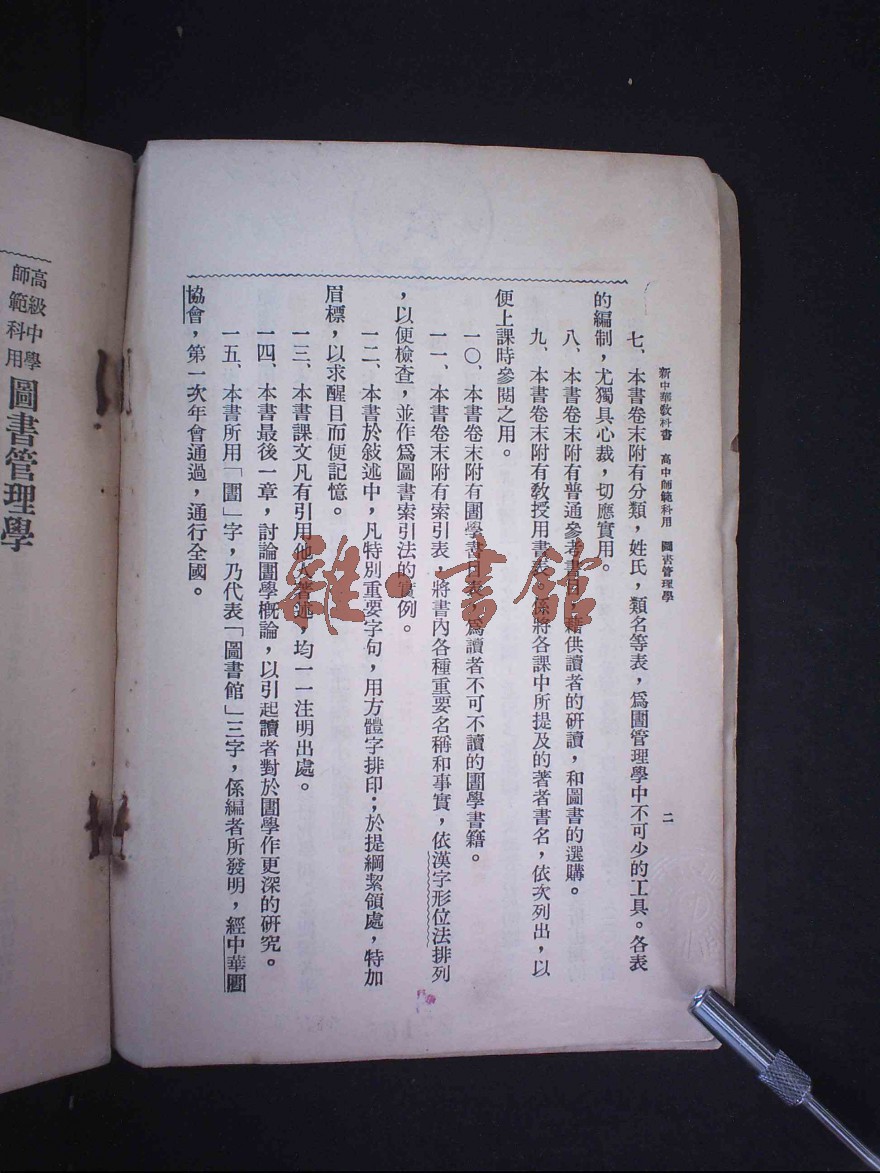 新中華敎科書　高中師範科用　圖書管理學
二
七、本書卷末附有分類，姓氏，類名等表，爲圕管理學中不可少的工具。各表
的編制，尤獨具心裁，切應實用。
八、本書卷末附有普通參考書目，藉供讀者的硏讀，和圖書的選購。
九、本書卷末附有敎授用書表。係將各課中所提及的著者書名，依次列出，以
便上課時參閱之用。
一〇、本書卷末附有圕學書目表，爲讀者不可不讀的圕學書籍。
一一、本書卷末附有索引表，將書內各種重要名稱和事實，依漢字形位法排列
，以便檢查，並作爲圖書索引法的實例。
一二、本書於敍述中，凡特別重要字句，用方體字排印；於提綱絜領處，特加
眉標，以求醒目而便記憶。
一三、本書課文凡有引用他人著述，均一一注明出處。
一四、本書最後一章，討論圕學槪論，以引起讀者對於圕學作更深的硏究。
一五、本書所用「圕」字，乃代表「圖書館」三字，係編者所發明，經中華圕
協會，第一次年會通過，通行全國。
高級中學
師範科用
圖書管理學
雜·書館